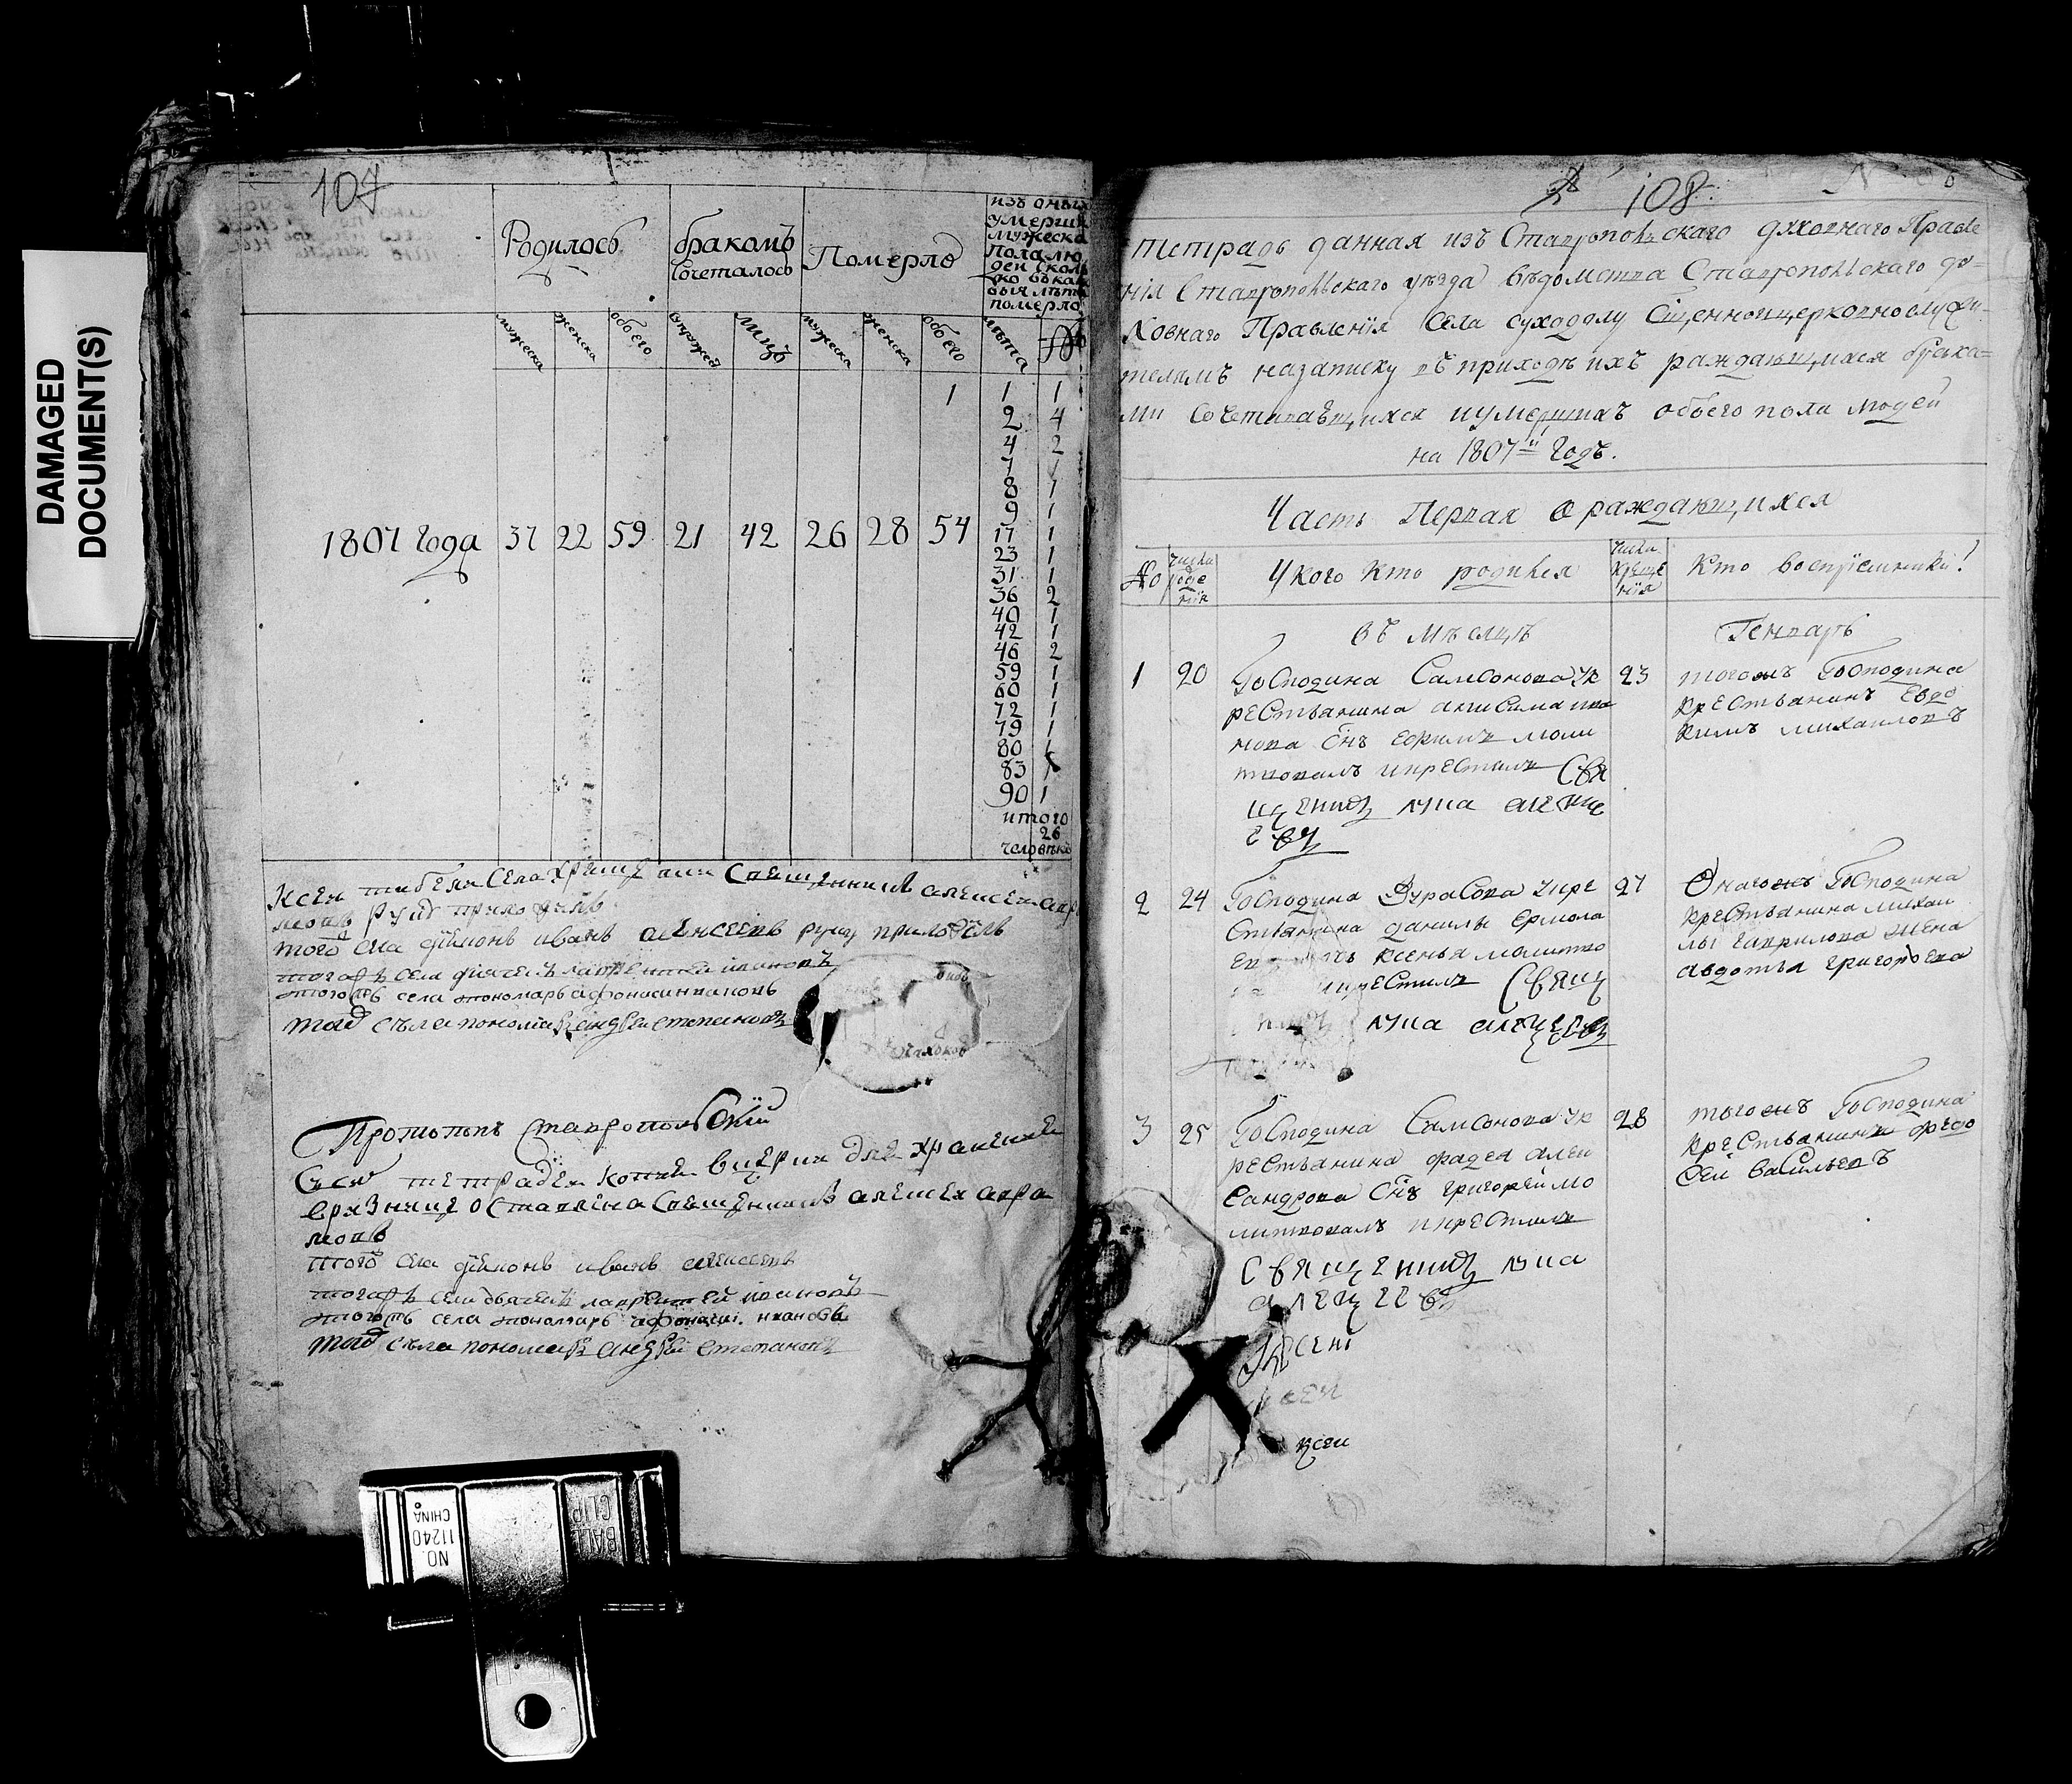 DAMAGED
DOCUMENT(S)
107
Родилось
бракомъ
сочеталось
Померло
изъ оныхъ
умерших
мужеска
пола лю
дей скол
ко въ как
выя лѣта
померло
мужеска
женска
обоего
супружес
лицъ
мужеска
женска
обоего
лѣта
1 1 1
2 4
4 2
7 1
8 1
9 1
17 1
23 1
31 1
36 2
40 1
42 1
46 2
59 1
60 1
72 1
79 1
80 1
83 1
90 1
1807 года 37 22 59 21 42 26 28 54
итого
26
человѣкъ
Ксей села священникъ алексей
руку приложилъ
того села дияконъ иванъ алексеевъ руку приложилъ
тогожъ села дьячекъ лаврентей ивановъ
тогожъ села пономарь афонасий ивановъ
тогожъ села пономарь андрей степановъ
Протопопъ Ставропольский
Съсей тетради копия вцеркви для хранения
вризнице оставлена священникъ алексей авра
мовъ
того села дияконъ иванъ алексеевъ
тогожъ села дьячекъ лаврентей ивановъ
тогожъ села пономарь афонасий ивановъ
тогожъ села пономарь андрей степановъ
108
Тетрадь данная изъ Ставропольскаго духовнаго Правле
нія Ставропольскаго уѣзда вѣдомства Ставропольскаго ду-
ховнаго Правленія села суходолу Сщенноицерковнослужи-
телямъ назаписку въ приходѣ ихъ раждающихся брака-
ми сочетавшихся иумершихъ обоего пола людей
на 1807й годъ.
Часть Первая о раждающихся
No
числа
рожде
нія
Укого кто родился
числа
креще
нія
Кто воспріемники!
въ мѣсяцѣ Генварь
1 20 Господина Самсонова ук
рестьянина анисима ива
нова снъ ефимъ моли
твовалъ икрестилъ Свя
щенникъ лука алекс
еевъ
23 тогожъ Господина
крестьянинъ Евдо
кимъ михаиловъ
2 24 Господина Дурасова укре
стьянина данилы ермола
ксенья молитво
икрестилъ Свящ
лука алексеевъ
27 Оногожъ Господина
крестьянина михаи
лы гаврилова жена
авдотья григорьева
3 25 Господина Самсонова ук
рестьянина фадея алек
сандрова снъ григорей мо
литвовалъ икрестилъ
Священникъ лука
алексеевъ
28 тогожъ Господина
крестьянинъ федо
сей васильевъ
ксей
NO.
11240
CHINA
BALL
CLIP